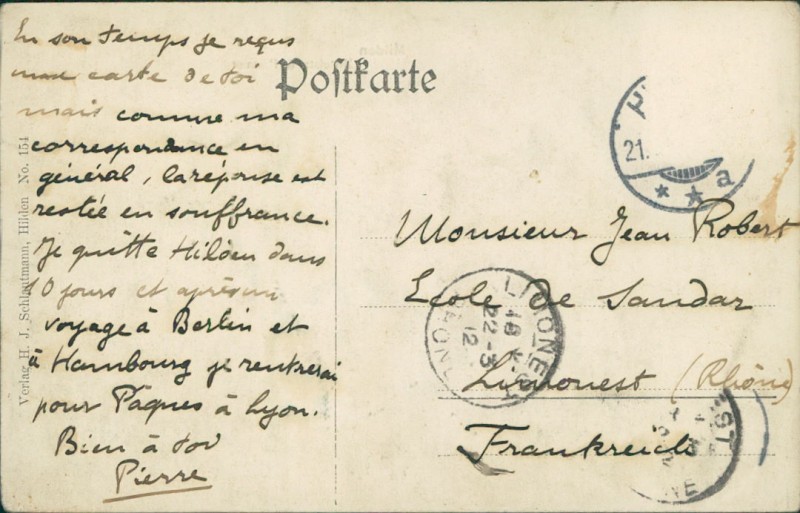 En son temps je reçus
une carte de toi
mais comme ma
correspondance en
général, la réponse est
restée en souffrance.
Je quitte Hilden dans
10 jours et après un
voyage à Berlin et
à Hambourg je rentrerai
pour Pâques à Lyon.
Bien à toi
Pierre
Postkarte
Verlag H. J. Schlautmann, Hilden No. 154
21.
a
Monsieur Jean Robert
Ecole de Sandar
Limonest (Rhône)
Frankreich
LIMONE
22-3
12
ST
NE